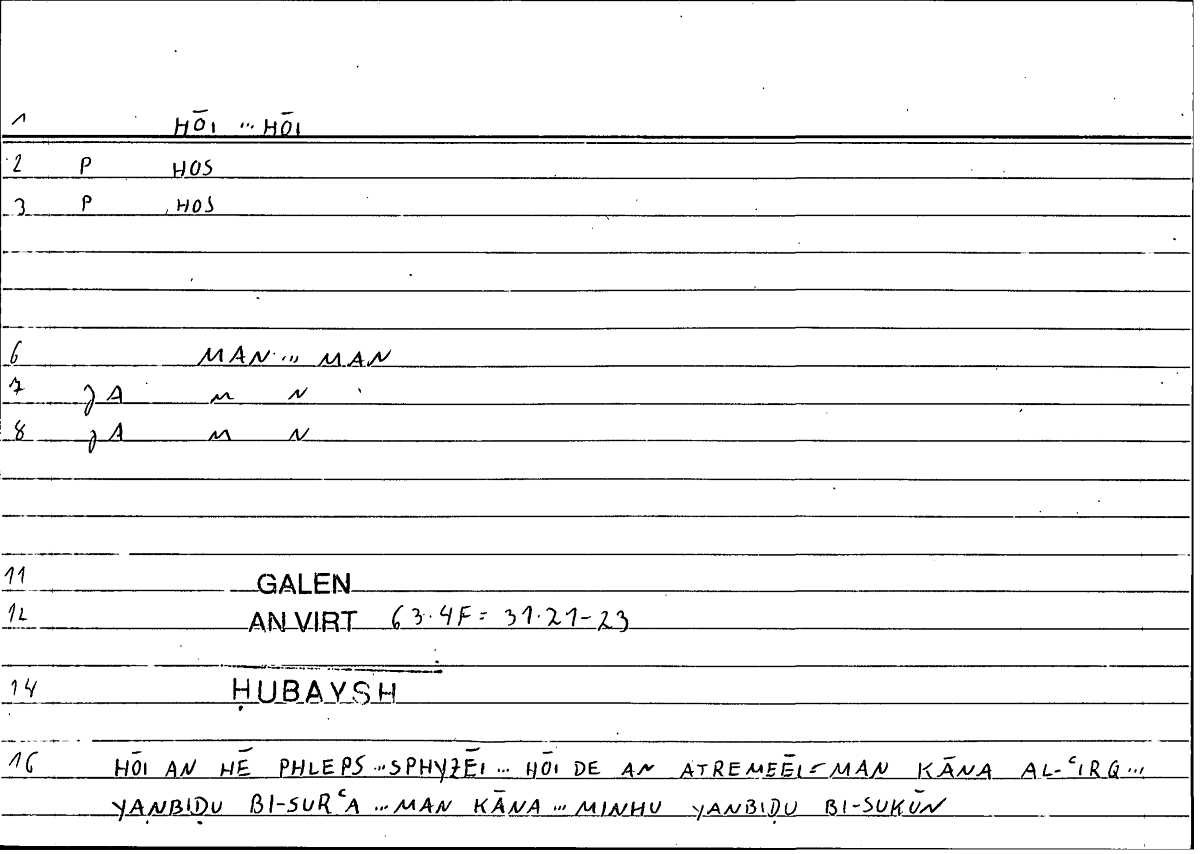 1 HŌI ... HŌI
2 P HOS
3 P HOS
6 MAN ... MAN
7 A M N
8 A M N
11 GALEN
12 AN VIRT 63.4F = 31.21-23
14 ḤUBAYSH
16 HŌI AN HĒ PHLEPS ... SPHYZĒI ... HŌI DE AN ATREMEĒI = MAN KĀNA AL-ʿIRQ ...
YANBIḌU BI-SURʿA ... MAN KĀNA ... MINHU YANBIḌU BI-SUKŪN